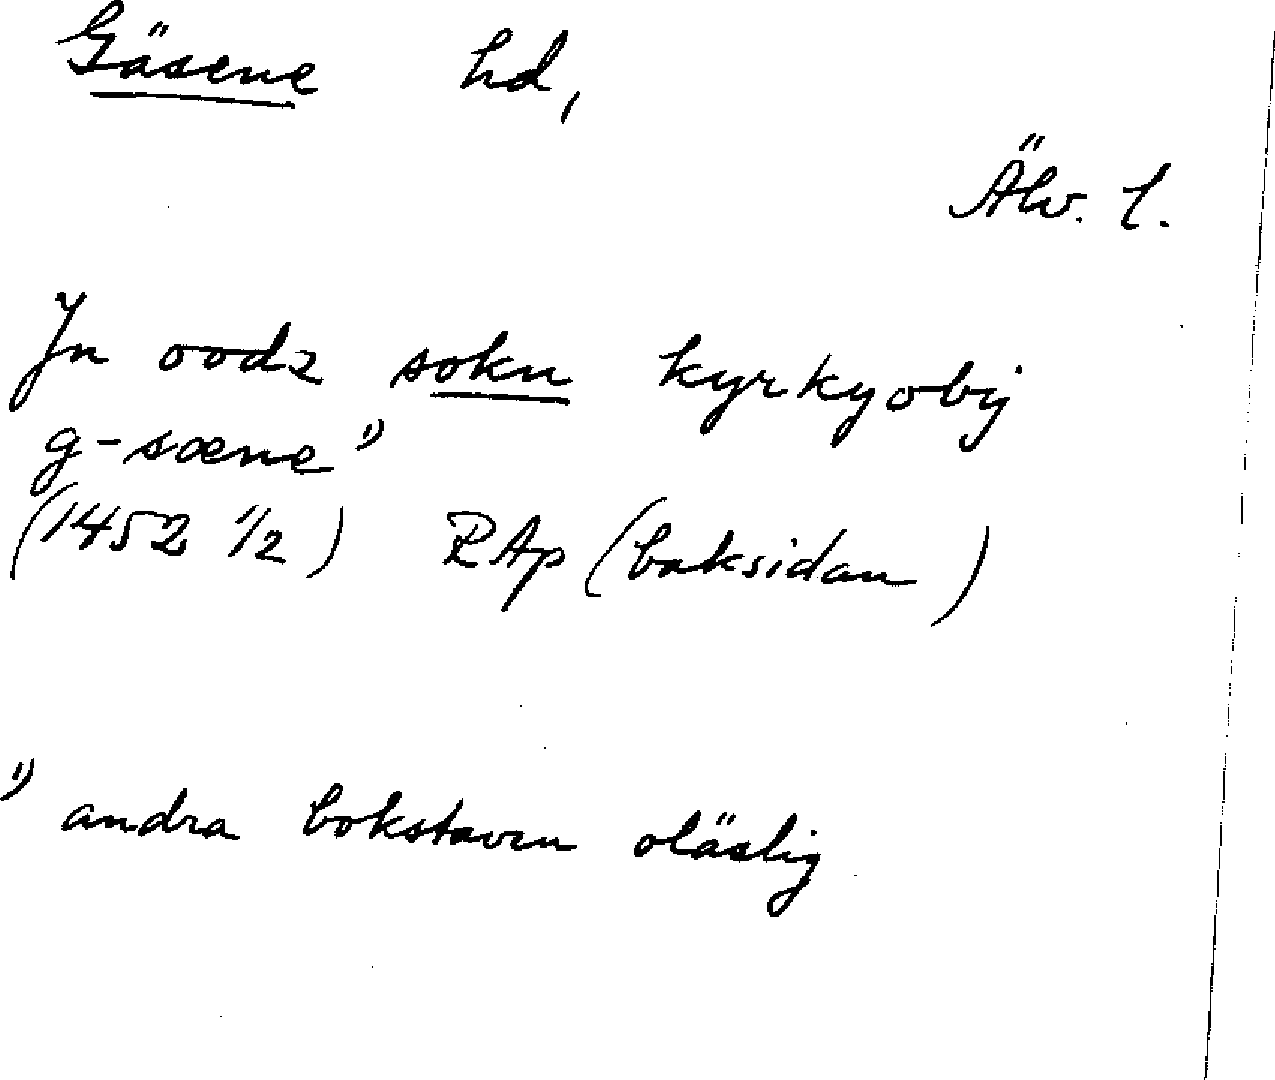 Gäsene hd,
Älv. l.
Jn oodz sokn kyrkyobij
g-sæne 1)
(1452 1/2) RAp (baksidan)
1) andra bokstaven oläslig